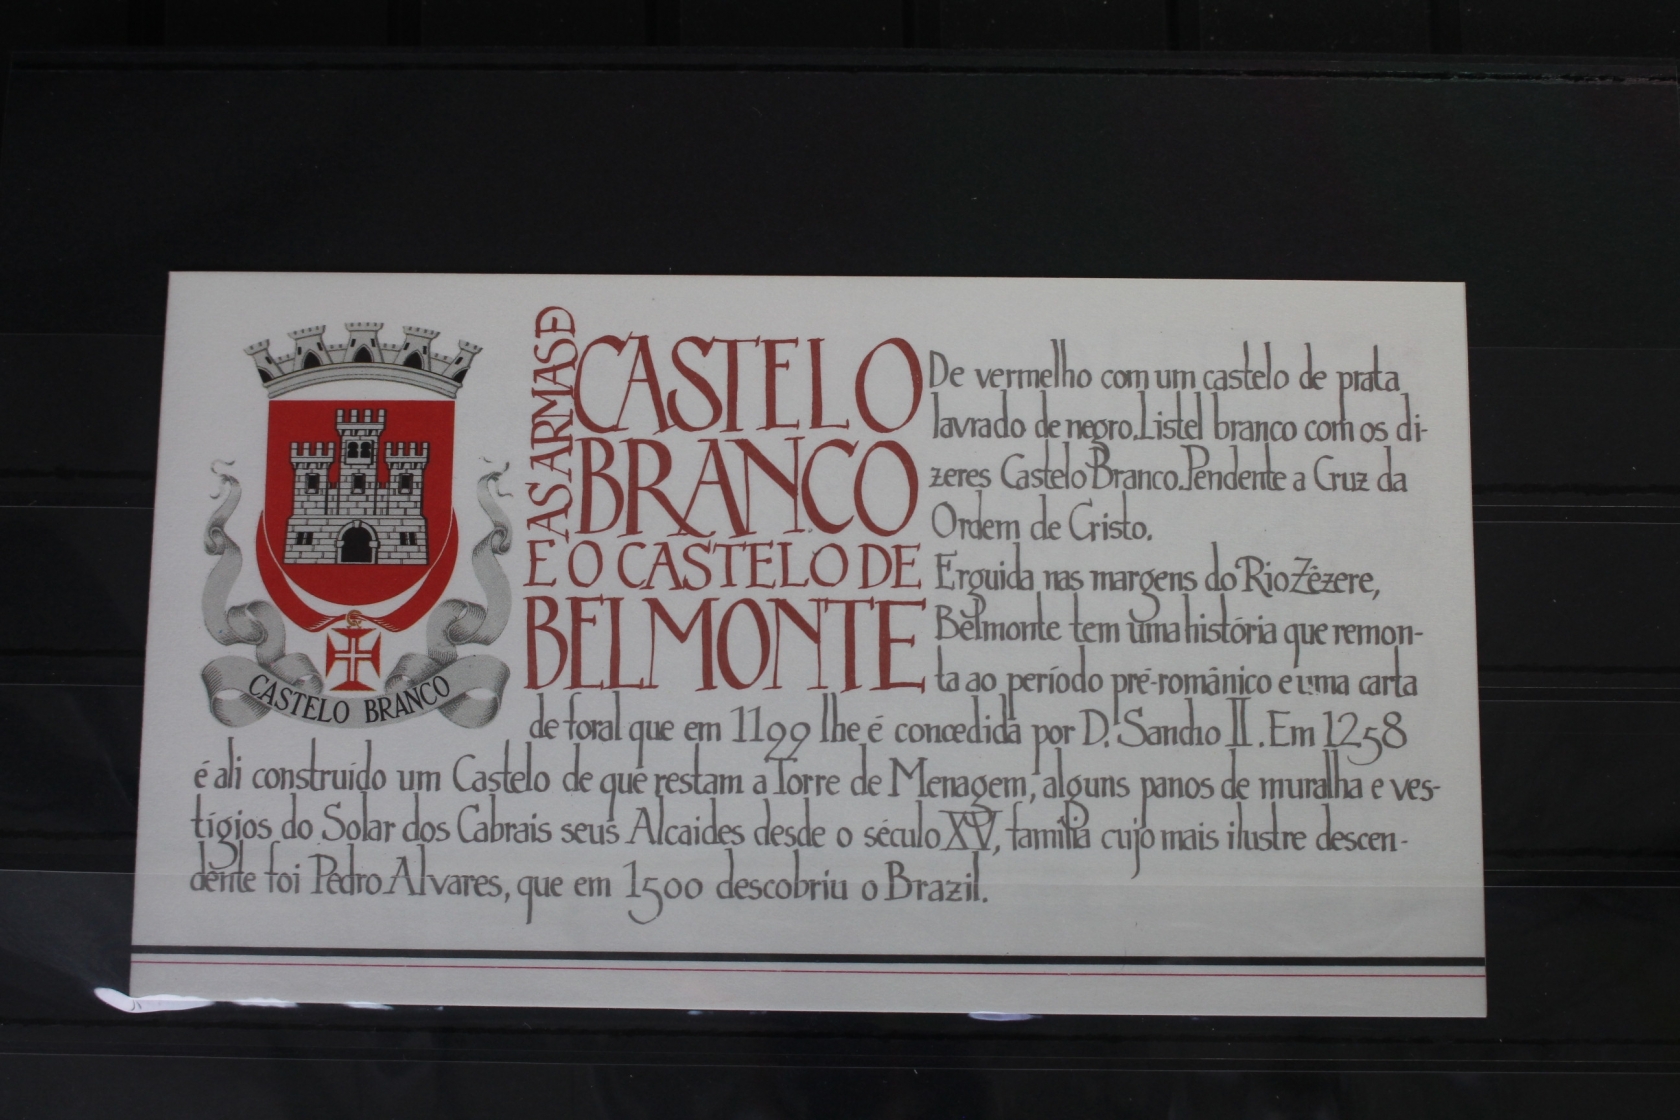 CASTELO BRANCO
E AS ARMAS DE
CASTELO
BRANCO
E O CASTELO DE
BELMONTE
De vermelho com um castelo de prata
lavrado de negro. Listel branco com os di-
zeres Castelo Branco. Pendente a Cruz da
Ordem de Cristo.
Erguida nas margens do Rio Zêzere,
Belmonte tem uma história que remon-
ta ao período pré-românico e uma carta
de foral que em 1199 lhe é concedida por D. Sancho II. Em 1258
é ali construído um Castelo de que restam a Torre de Menagem, alguns panos de muralha e ves-
tígios do Solar dos Cabrais seus Alcaides desde o século XV, família cujo mais ilustre descen-
dente foi Pedro Alvares, que em 1500 descobriu o Brazil.